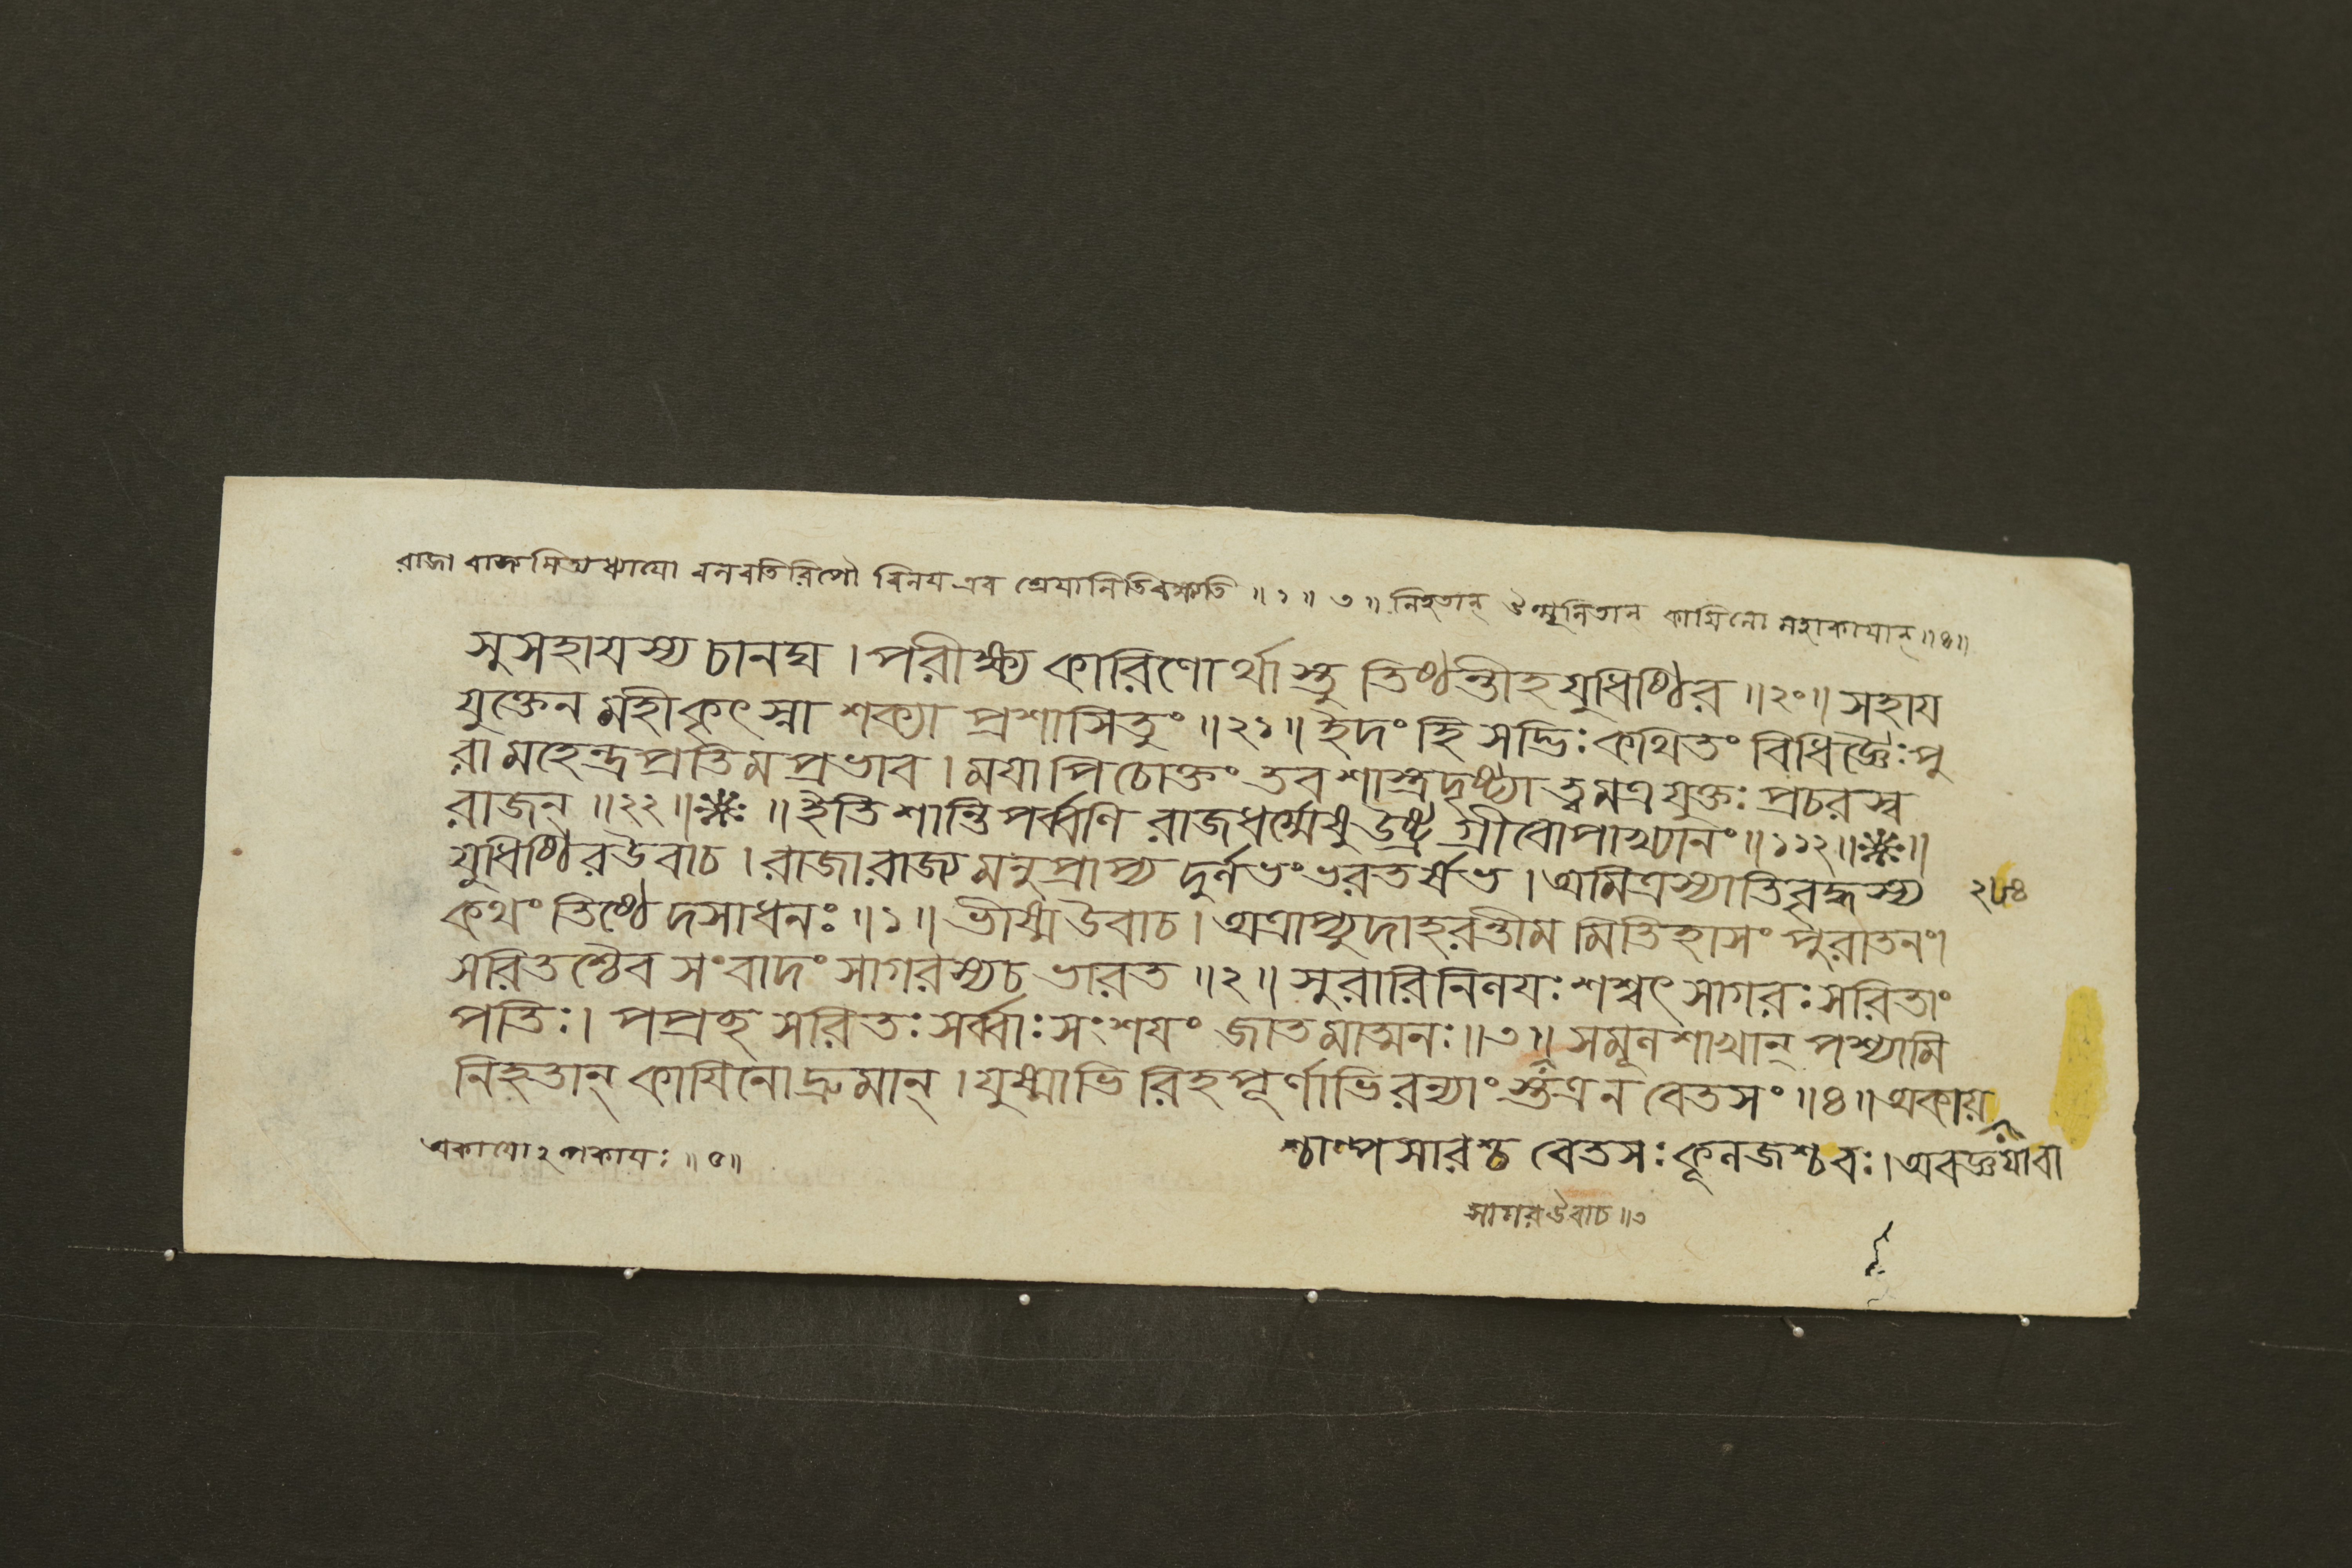 রাজা রাজ্যমিত্যধ্যাযো বলবতি রিপৌ বিনয এব শ্রেযানিতি বক্ষ্যতি ॥ ১ ॥ ৩ ॥ নিহ্নতান্ উন্মূলিতান্ কাযিনো মহাকাযান্ ॥ ৪ ॥
সুসহাযস্য চানঘ । পরীক্ষ্য কারিণোর্থাস্তু তিষ্ঠন্তীহ যুধিষ্ঠির ॥ ২০ ॥ সহায
যুক্তেন মহীকৃৎস্না শক্যা প্রশাসিতুং ॥ ২১ ॥ ইদং হি সদ্ভিঃ কথিতং বিধিজ্ঞৈঃ পু
রা মহেন্দ্রপ্রতিমপ্রভাব । মযাপি চোক্তং তব শাস্ত্রদৃষ্ট্যা ত্বমত্র যুক্তঃ প্রচরস্ব
রাজন্ ॥ ২২ ॥ ※ ॥ ইতি শান্তিপর্ব্বণি রাজধর্ম্মেষু উষ্ট্রগ্রীবোপাখ্যানং ॥ ১১২ ॥ ※ ॥
যুধিষ্ঠির উবাচ । রাজা রাজ্যমনুপ্রাপ্য দুর্লভং ভরতর্ষভ । অমিত্রস্যাতিবৃদ্ধস্য
২৮৪
কথং তিষ্ঠেদসাধনঃ ॥ ১ ॥ ভীষ্ম উবাচ । অত্রাপ্যুদাহরন্তীমমিতিহাসং পুরাতনং ।
সরিতশ্চৈব সংবাদং সাগরস্য চ ভারত ॥ ২ ॥ সুরারিনিলযঃ শশ্বৎ সাগরঃ সরিতাং
পতিঃ । পপ্রচ্ছ সরিতঃ সর্ব্বাঃ সংশযং জাতমাত্মনঃ ॥ ৩ ॥ সমূলশাখান্ পশ্যামি
নিহ্নতান্ কাযিনো দ্রুমান্ । যুষ্মাভিরিহ পূর্ণাভিরন্যাংস্তত্র ন বেতসং ॥ ৪ ॥ অকায়
শ্চাল্পসারশ্চ বেতসঃ কূলজশ্চ বঃ । অবজ্ঞযা বা
অকাযোঽল্পকাযঃ ॥ ৫ ॥
সাগর উবাচ ॥ ৩